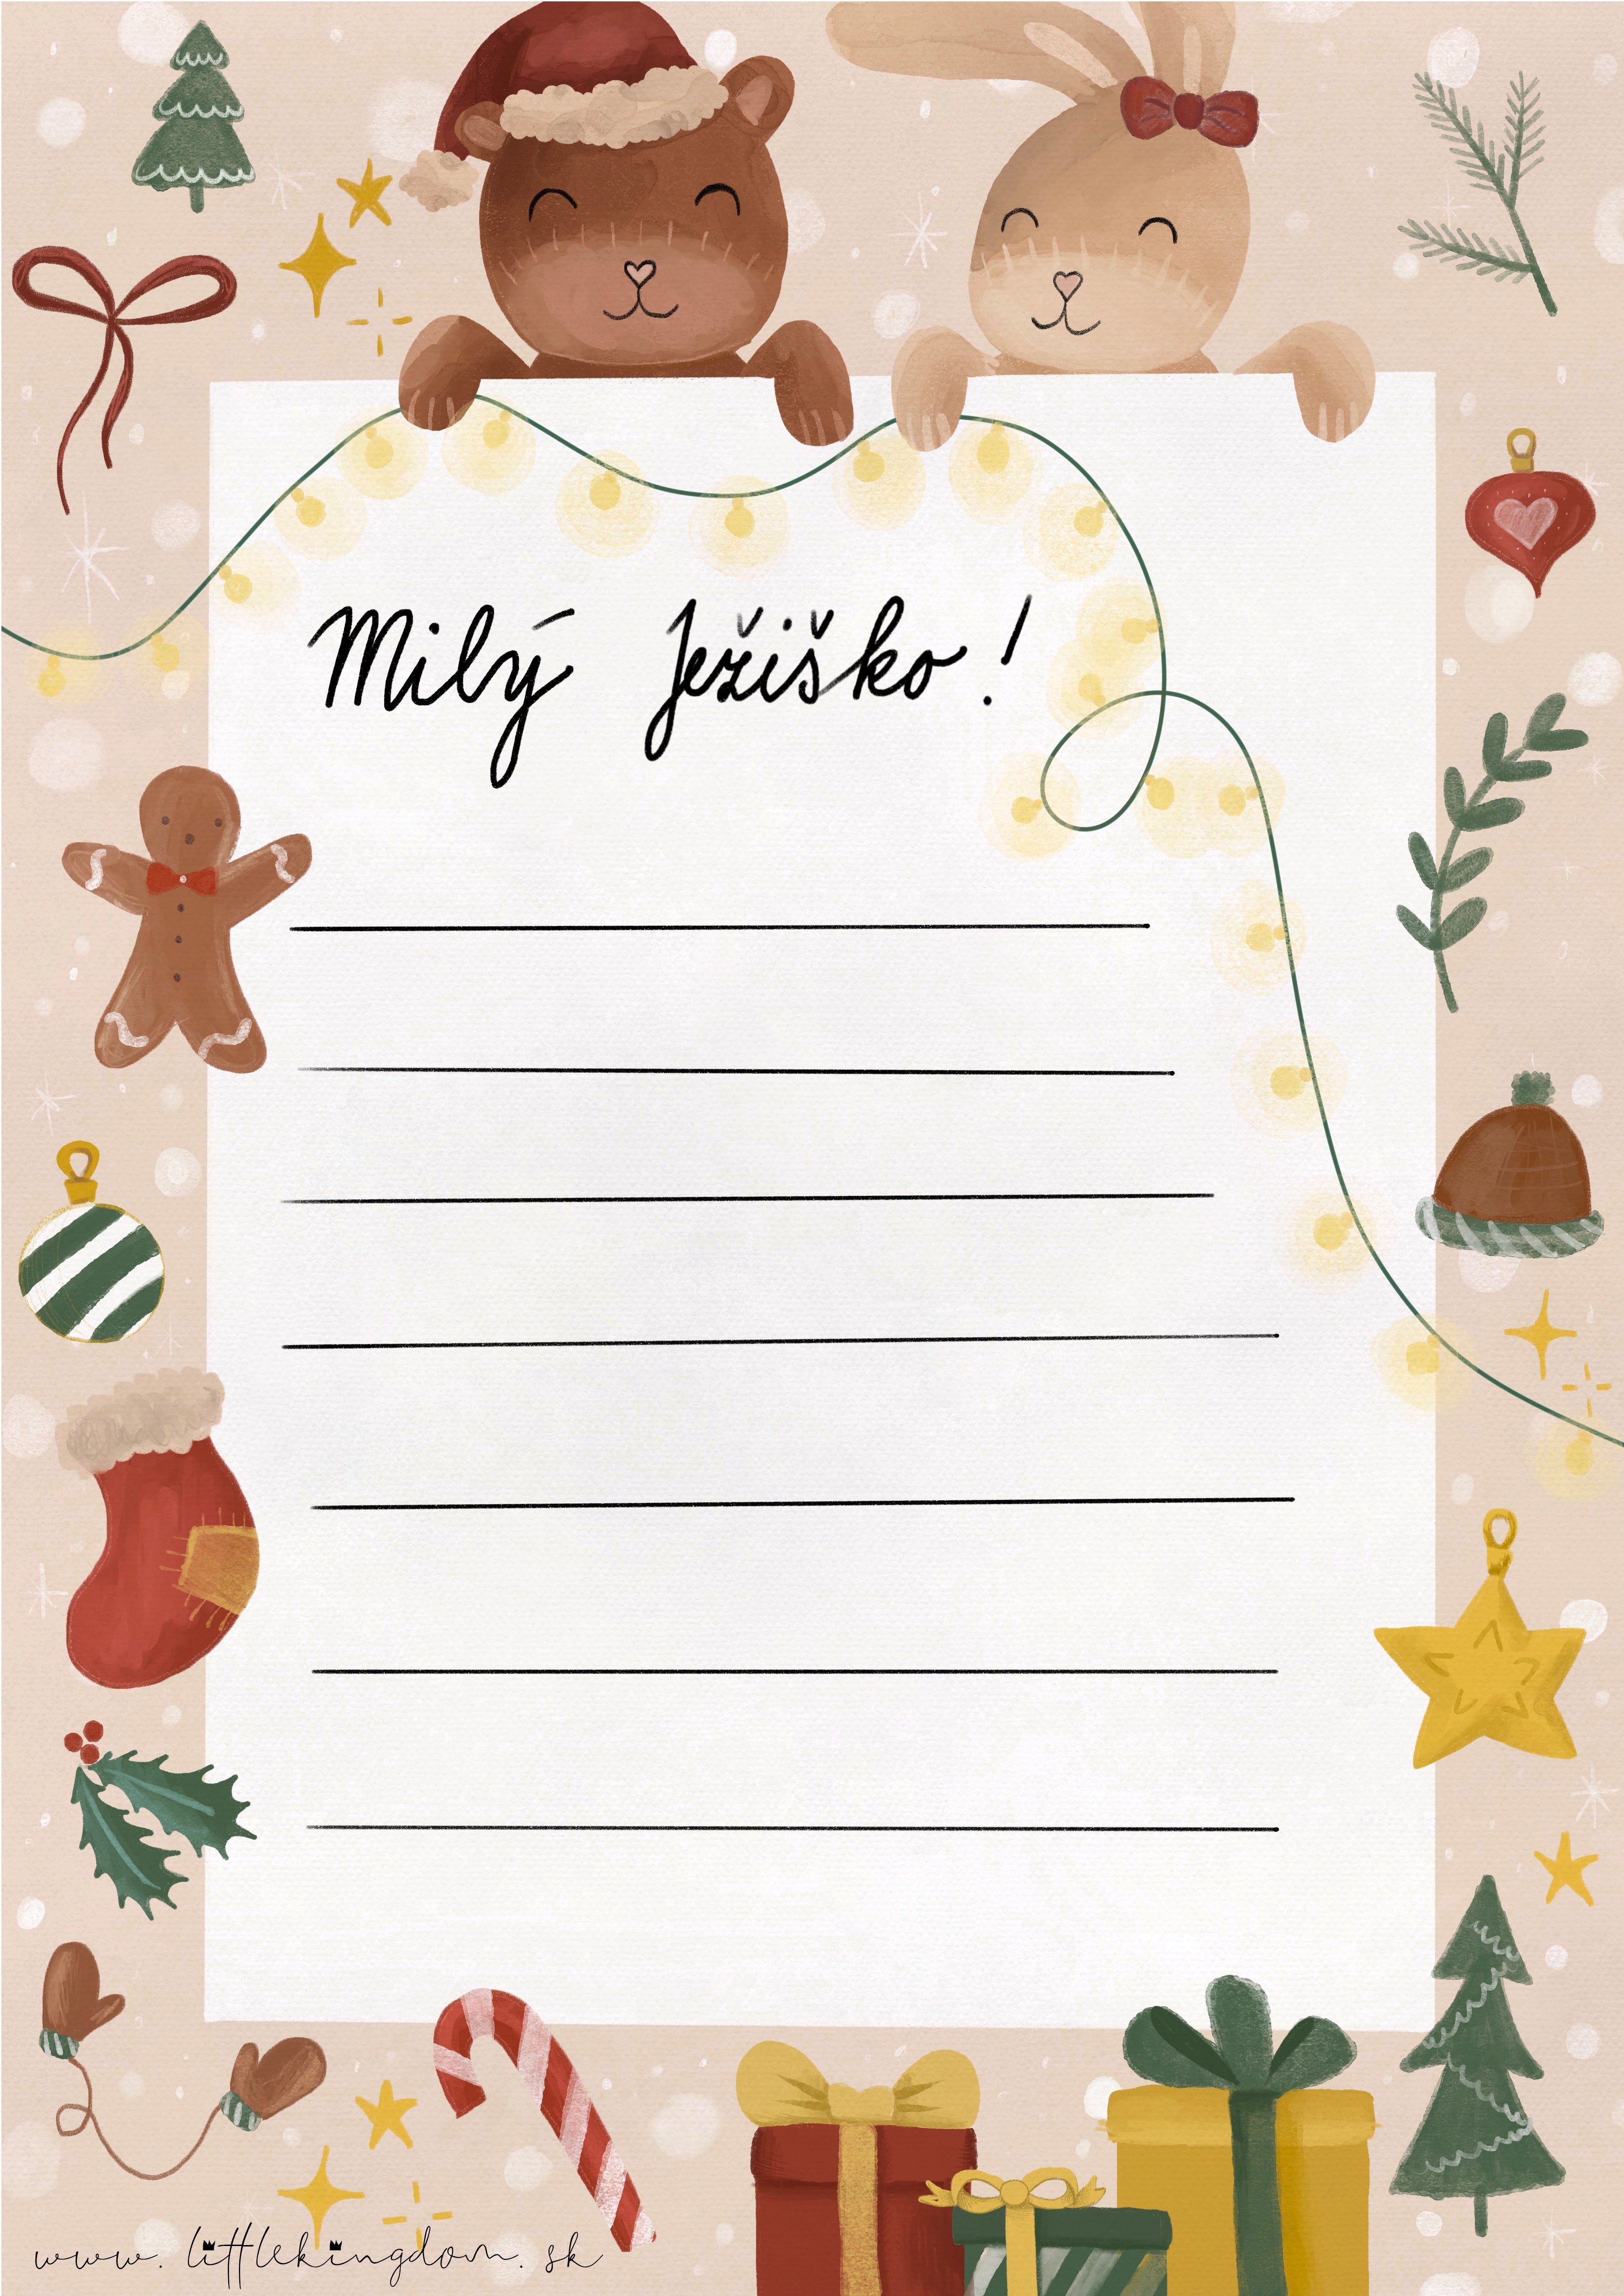 Milý Ježiško!
www.littlekingdom.sk